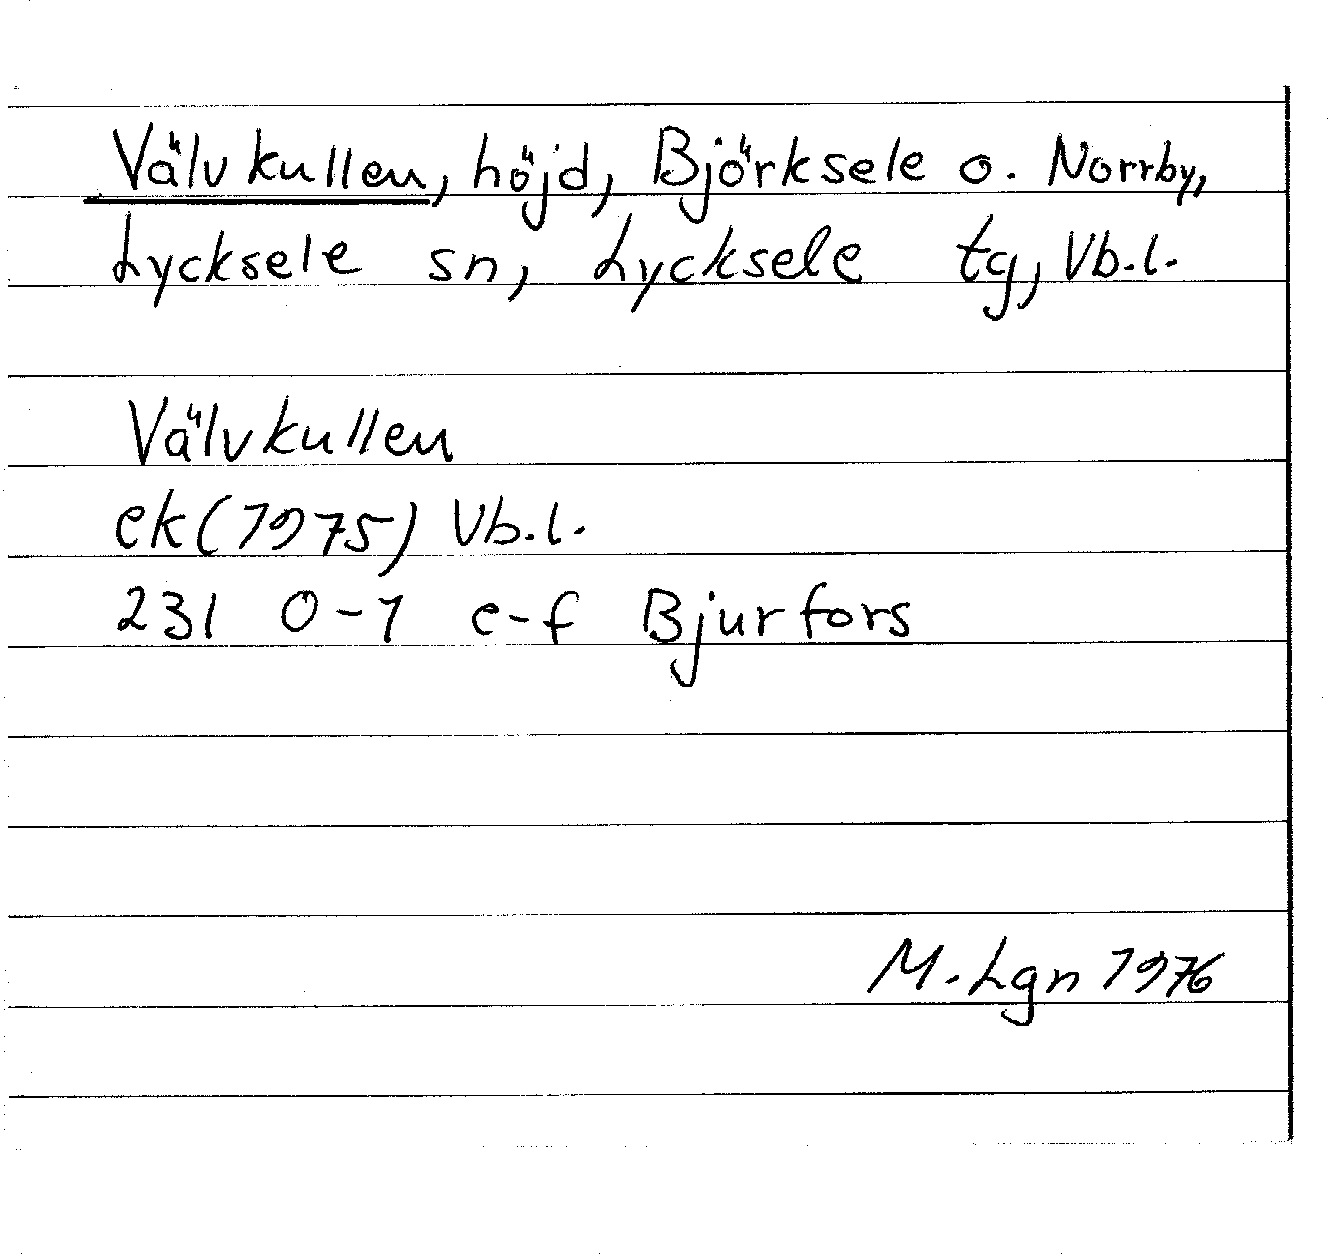 Välvkullen, höjd, Björksele o. Norrby,
Lycksele sn, Lycksele tg, Vb.l.
Välvkullen
ek (1975) Vb.l.
231 0-1 e-f Bjurfors
M. Lgn 1976